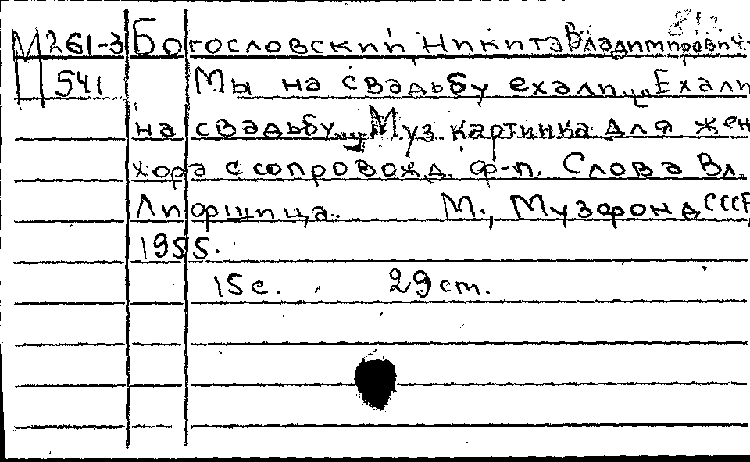 М 261-3 Богословский Никита Владимирович.
541 Мы на свадьбу ехали... „Ехали
на свадьбу..." Муз. картинка для жен.
хора с сопровожд. ф-п. Слова Вл.
Лифшица. М., Музфонд СССР,
1955.
15 с. 29 см.